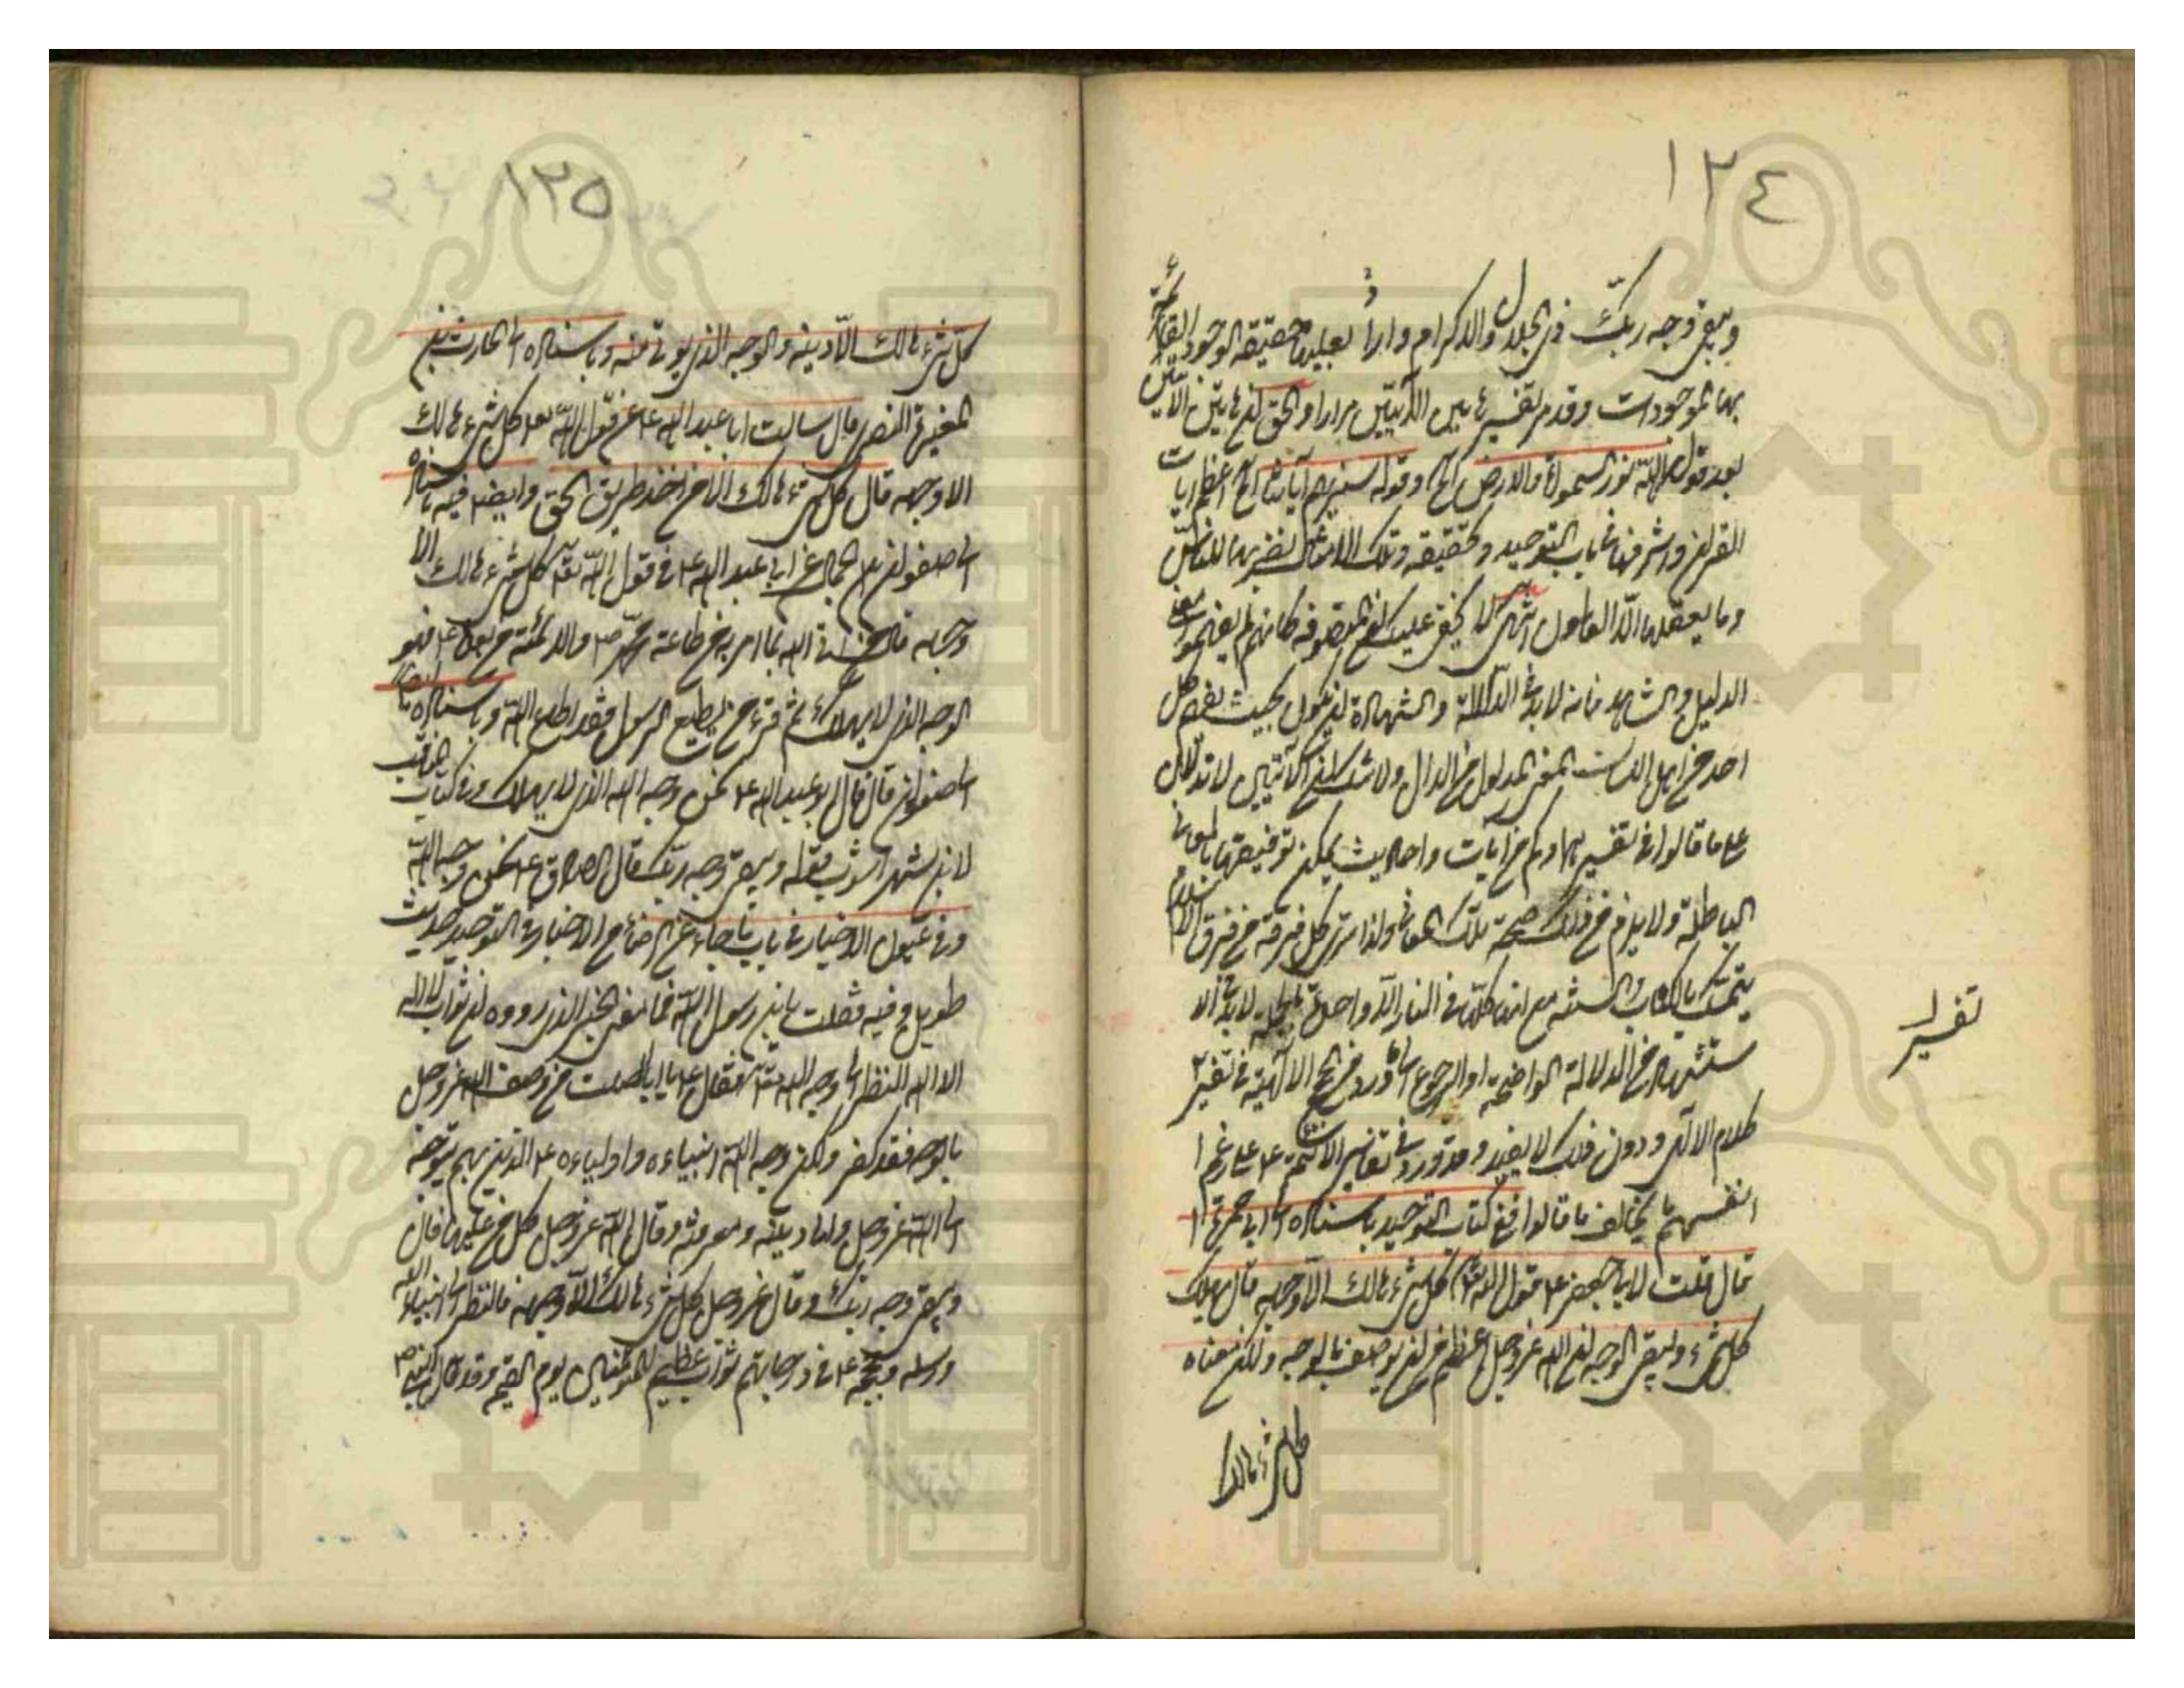 ١٢٤
ويبقى وجه ربك ذو الجلال والاكرام وارادا بعليها حقيقة الوجود القائمة
بها الموجودات وقد مر تفسير هاتين الآيتين مرارا والحق ان هاتين الآيتين
بعد قوله الله نور السموات والارض الخ وقوله سنريهم آياتنا الخ اعظم آيات
القرآن واشرفها في باب التوحيد وتحقيقه وتلك الامثال نضربها للناس
وما يعقلها الا العالمون انتهى لا يخفى عليك ان المتصوفة كانهم لم يفهموا معنى
الدليل والشاهد فانه لا بد في الدلالة والشهادة ان يكون بحيث يفهم كل
احد من اهل اللسان المعنى المدلول من الدال ولا شك ان الآيتين لا تدلان
على ما قالوا في تفسيرهما وكم من آيات واحاديث يمكن توفيقها بالمعاني
الباطلة ولا يلزم من ذلك صحة تلك المعاني ولذا ترى كل فرقة من فرق الاسلام
يتمسك بالكتاب والسنة مع ان كلها في النار الا واحدة لا بد في الا
ستشهاد من الدلالة الواضحة او الرجوع الى ما ورد من الحجج الالهية في تفسير
كلام الاله ودون ذلك لا يفيد وقد ورد في تفاسير الائمة ع على رغم ا
نفسهم ما يخالف ما قالوا ففي كتاب التوحيد باسناده الى ابي حمزة
قال قلت لابي جعفر ع قول الله تعالى كل شيء هالك الا وجهه قال يهلك
كل شيء ويبقى الوجه ان الله عز وجل اعظم من ان يوصف بالوجه ولكن معناه
كل شيء هالك
تفسير
١٢٥
كل شيء هالك الا دينه والوجه الذي يؤتى منه وباسناده الى الحارث بن
المغيرة النصري قال سالت ابا عبد الله ع عن قول الله تعالى كل شيء هالك
الا وجهه قال كل شيء هالك الا من اخذ طريق الحق وايضا فيه باسناده
الى صفوان عن الجمال عن ابي عبد الله ع في قول الله تعالى كل شيء هالك الا
وجهه قال من اتى الله بما امر به من طاعة محمد ص والائمة من بعده ع فهو
الوجه الذي لا يهلك ثم قرء من يطع الرسول فقد اطاع الله وباسناده ايضا
الى صفوان قال قال ابو عبد الله ع نحن وجه الله الذي لا يهلك وفي كتاب المناقب
لابن شهر آشوب قوله ويبقى وجه ربك قال الصادق ع نحن وجه الله
وفي عيون الاخبار في باب ما جاء عن الرضا ع من الاخبار في التوحيد حديث
طويل وفيه فقلت يا بن رسول الله فما معنى الخبر الذي رووه ان ثواب لا اله
الا الله النظر الى وجه الله تعالى فقال ع يا ابا الصلت من وصف الله عز وجل
بالوجه فقد كفر ولكن وجه الله انبياءه واولياءه ع الذين بهم يتوجه
الى الله عز وجل والى دينه ومعرفته وقال الله عز وجل كل من عليها فان
ويبقى وجه ربك وقال عز وجل كل شيء هالك الا وجهه فالنظر الى انبياء الله
ورسله وحججه ع في درجاتهم ثواب عظيم للمؤمنين يوم القيمة وقد قال النبي ص